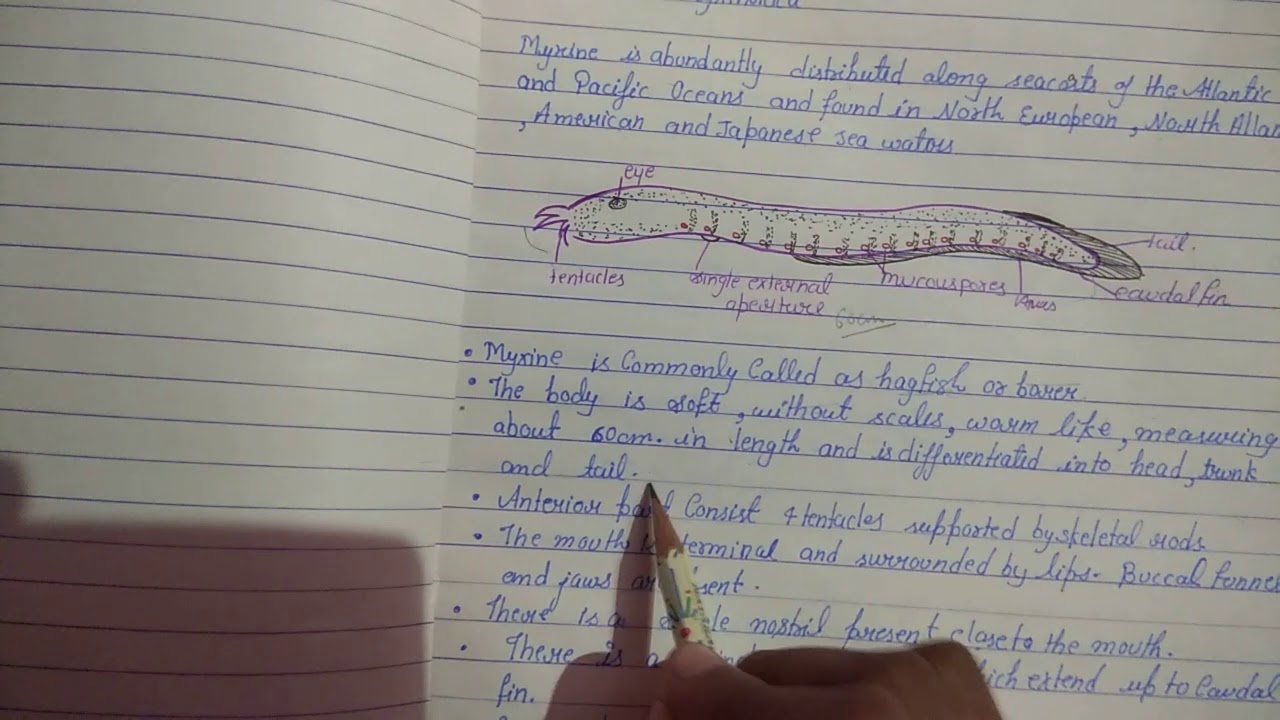 Myxine is abundantly distributed along seacosts of the Atlantic
and Pacific Oceans and found in North European, North
, American and Japanese sea waters
eye
tentacles
single external
aperture
60cm
mucouspores
Anus
tail.
caudal fin
• Myxine is Commonly Called as hagfish or barer.
• The body is soft, without scales, warm like, measuring
about 60cm. in length and is differentiated into head, trunk
and tail.
• Anterior Consist 4 tentacles supported by skeletal rods
• The mouth terminal and surrounded by lips. Buccal funnel
and jaws
• There is a nostril present close to the mouth.
• There is a extend up to Caudal
fin.